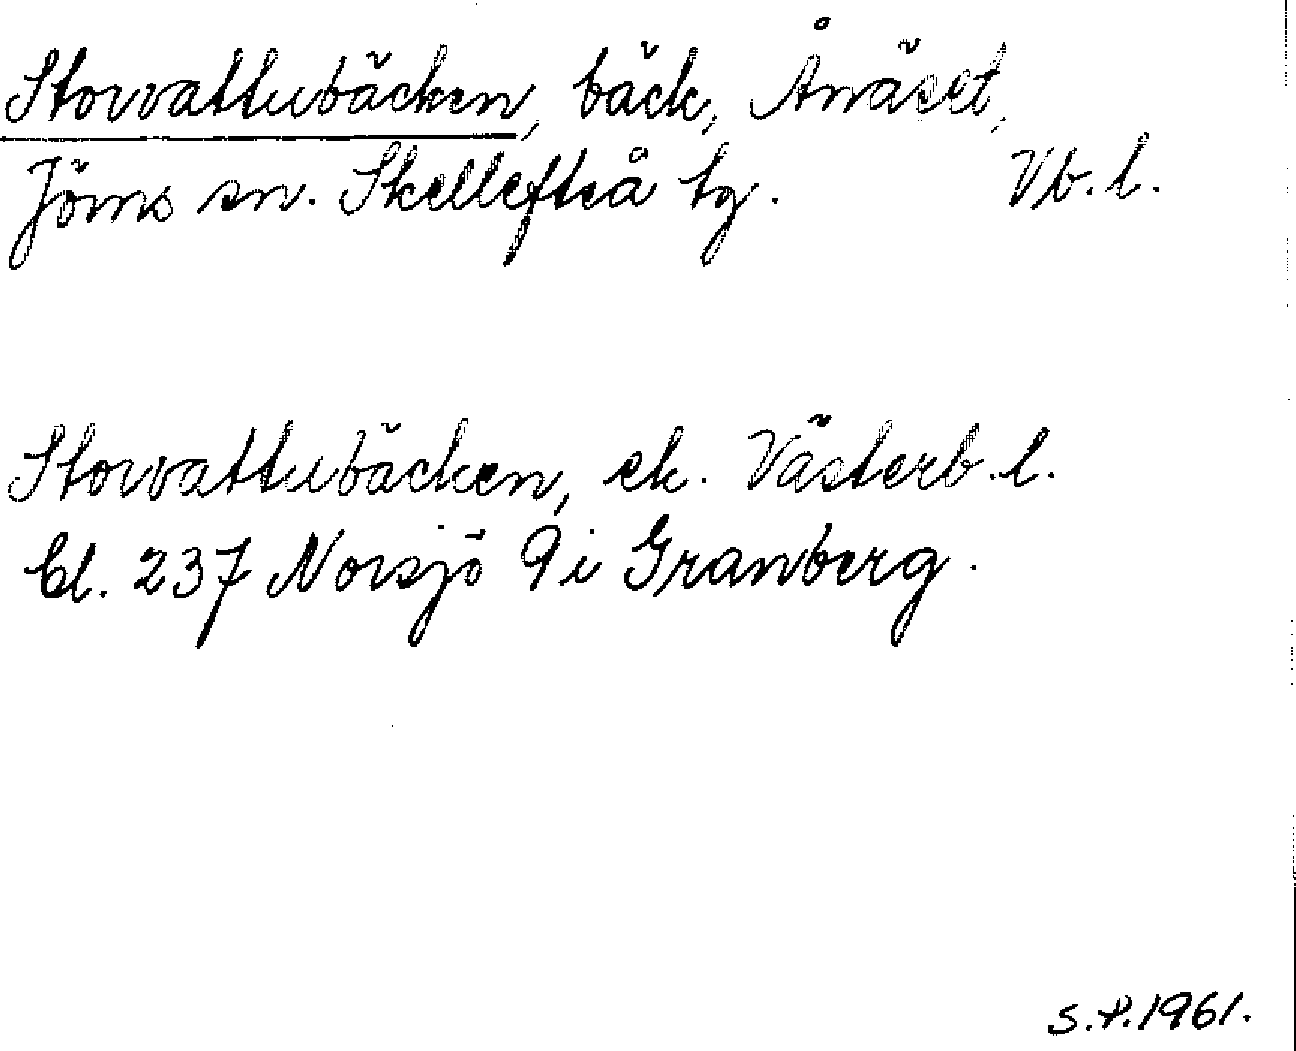 Storvattubäcken, bäck, Ånäset,
Jörns sn. Skellefteå tg. Vb. l.
Storvattubäcken, ek. Västerb. l.
Bl. 237 Norsjö 9 i Granberg.
S.P. 1961.